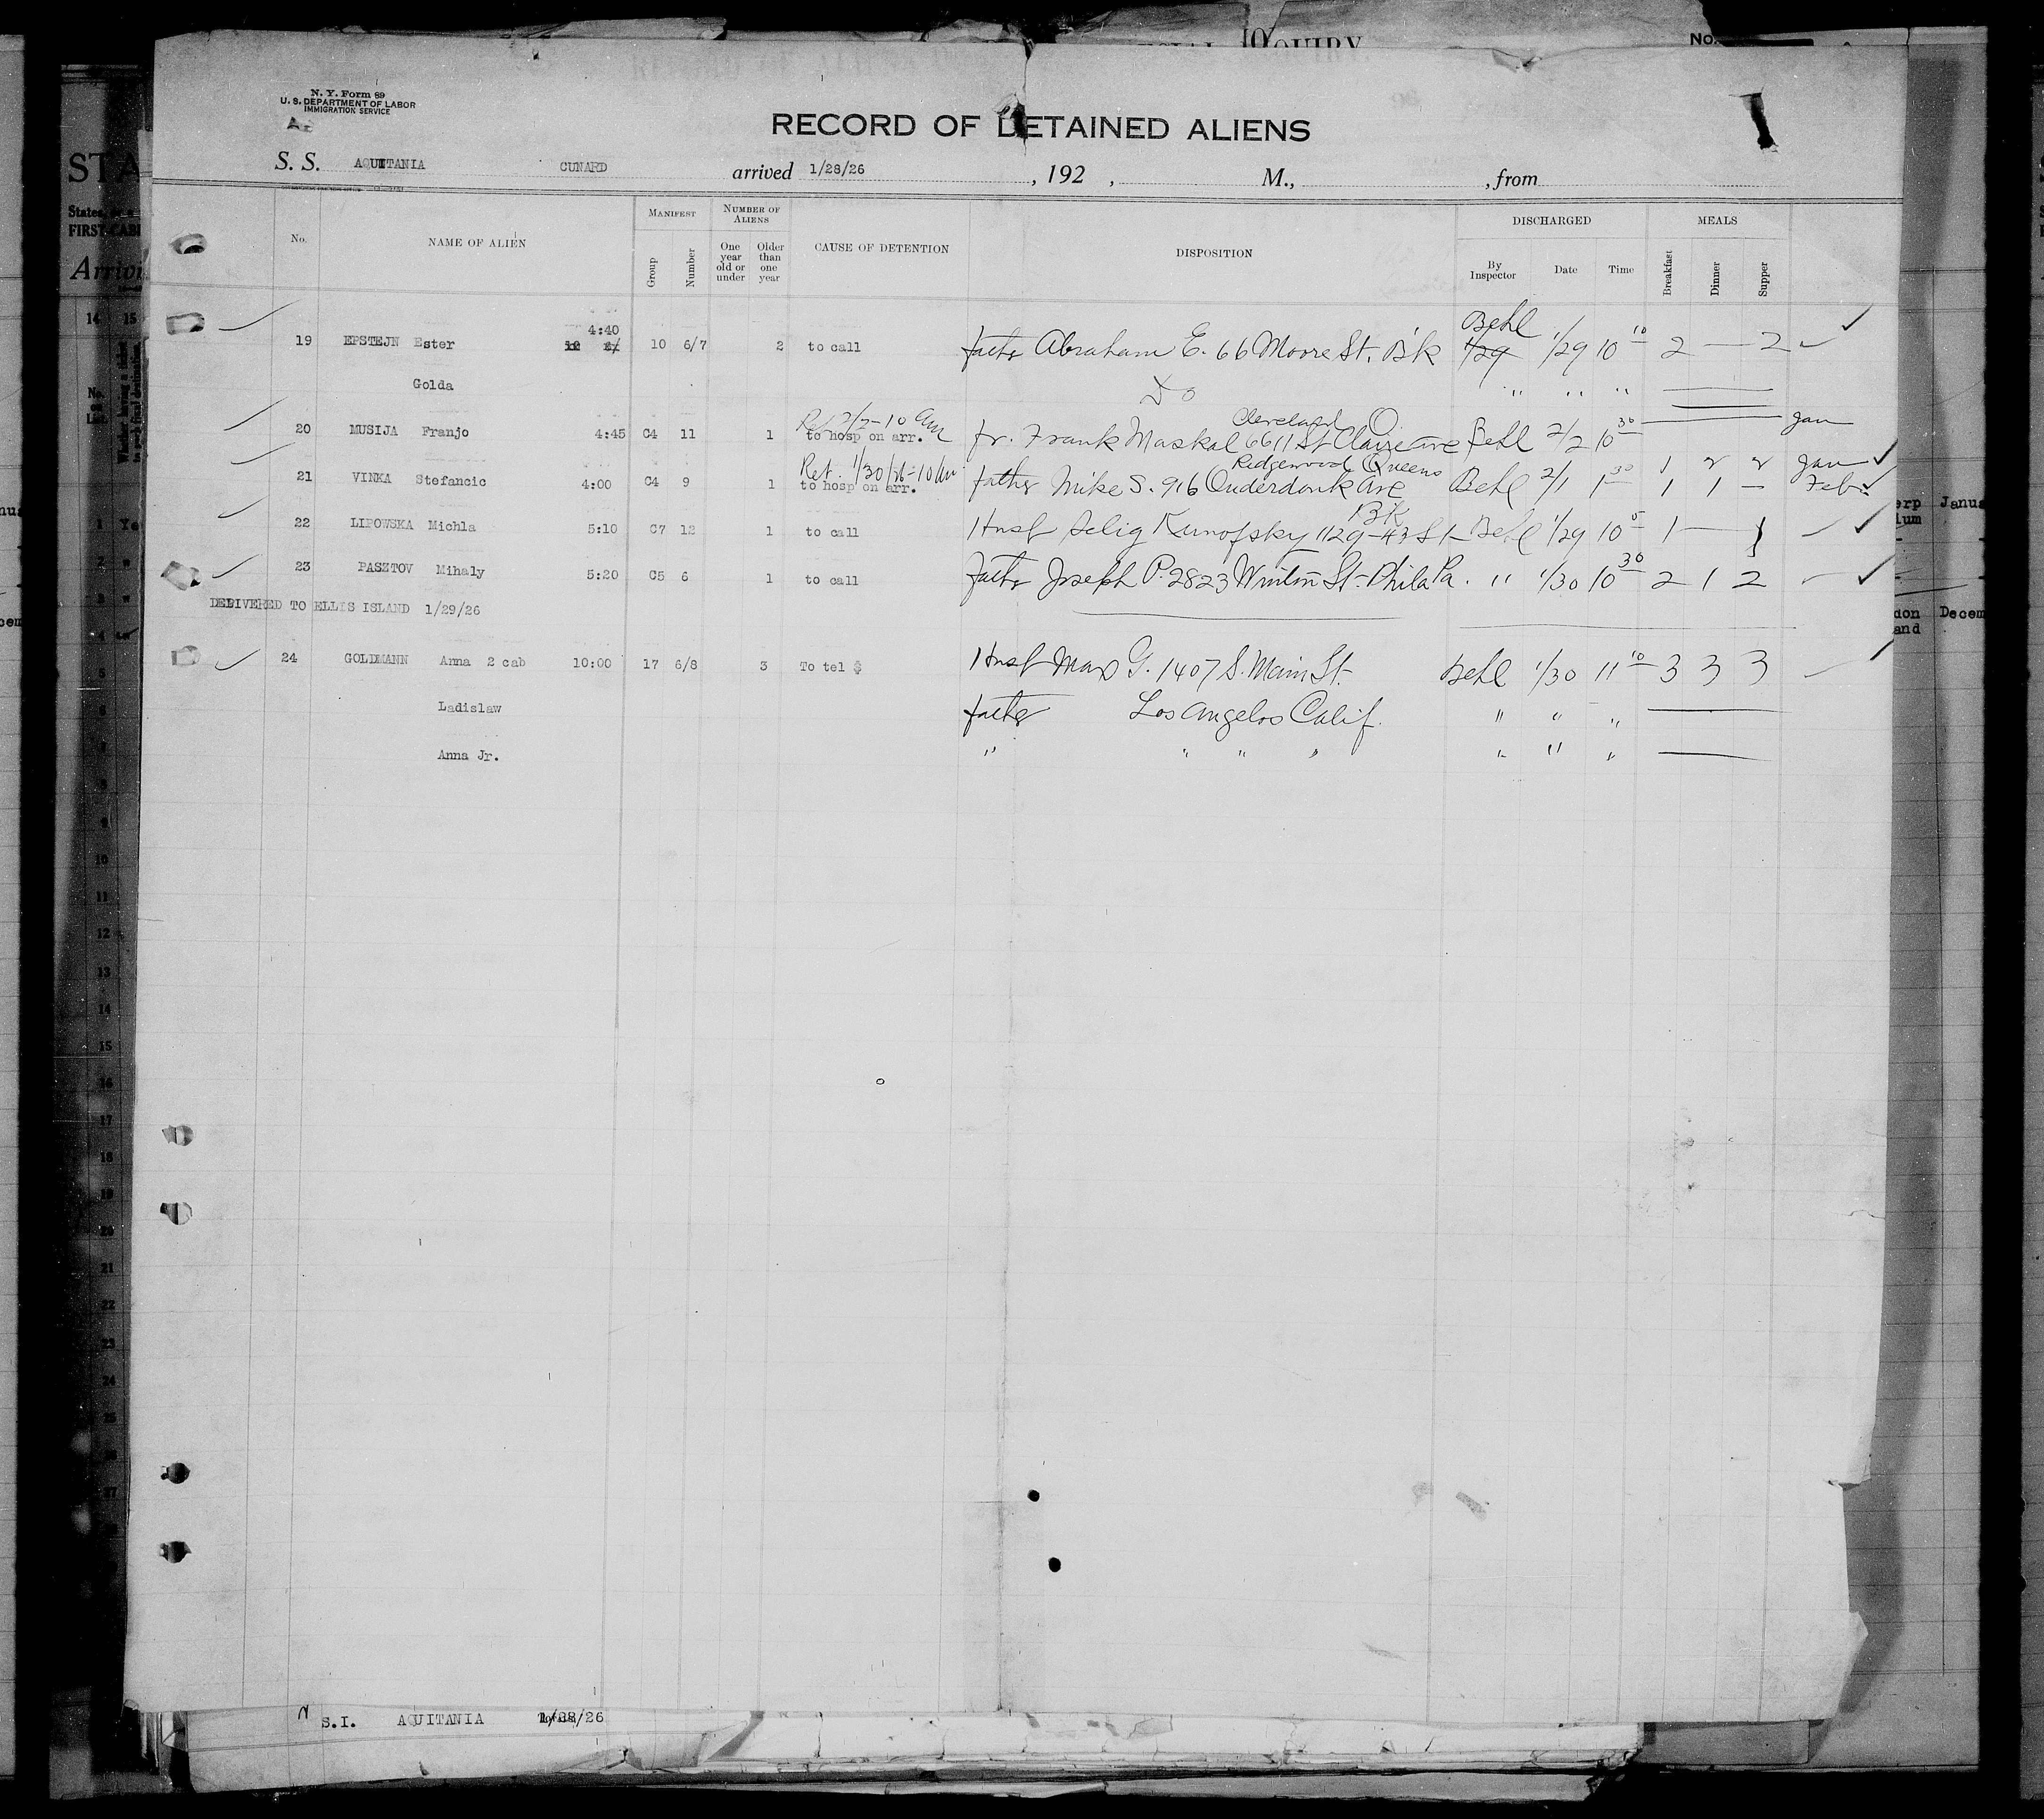 N. Y. Form 89
U. S. DEPARTMENT OF LABOR
IMMIGRATION SERVICE
RECORD OF DETAINED ALIENS
S. S. AQUITANIA CUNARD arrived 1/28/26 , 192 , M., , from
No. NAME OF ALIEN MANIFEST Group Number NUMBER OF ALIENS One year old or under Older than one year CAUSE OF DETENTION DISPOSITION DISCHARGED By Inspector Date Time MEALS Breakfast Dinner Supper
4:40 Behl
19 EPSTEJN Ester 10 6/7 2 to call father Abraham E. 66 Moore St. B'k 1/29 1/29 10 10 2 — 2
Golda Do " " "
Ret 2/2-10 am Cleveland O. Jan
20 MUSIJA Franjo 4:45 C4 11 1 to hosp on arr. fr. Frank Maskal 6611 St Claire ave Behl 2/2 10 30
Ret. 1/30/26-10 am Ridgewood Queens 1 2 2 Jan
21 VINKA Stefancic 4:00 C4 9 1 to hosp on arr. father Mike S. 916 Onderdonk Ave Behl 2/1 1 30 1 1 — Feb
Bk
22 LIPOWSKA Michla 5:10 C7 12 1 to call Husb Selig Kunofsky 1129-43 St- Behl 1/29 10 5 1 — 1
23 PASZTOV Mihaly 5:20 C5 6 1 to call father Joseph P. 2823 Winton St- Phila Pa. " 1/30 10 30 2 1 2
DELIVERED TO ELLIS ISLAND 1/29/26
24 GOLDMANN Anna 2 cab 10:00 17 6/8 3 To tel $ Husb Max G. 1407 S. Main St. Behl 1/30 11 10 3 3 3
Ladislaw father Los Angelos Calif. " " "
Anna Jr. " " " " " " "
S.I. AQUITANIA 1/28/26